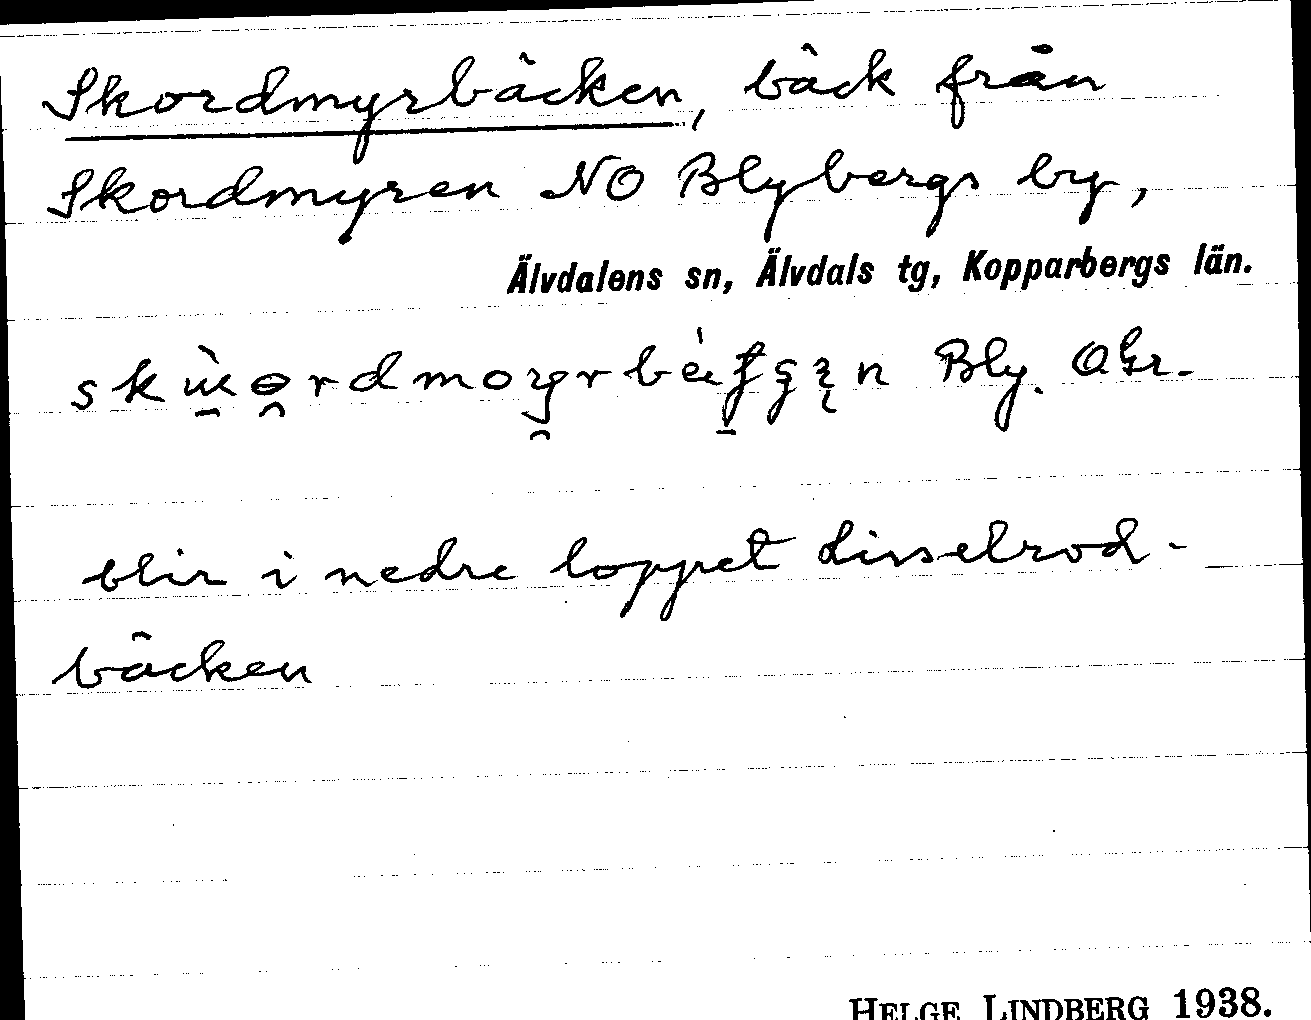 Skordmyrbäcken, bäck från
Skordmyren NO Blybergs by,
Älvdalens sn, Älvdals tg, Kopparbergs län.
Bly. OGr.
blir i nedre loppet Lisselrod-
bäcken
HELGE LINDBERG 1938.